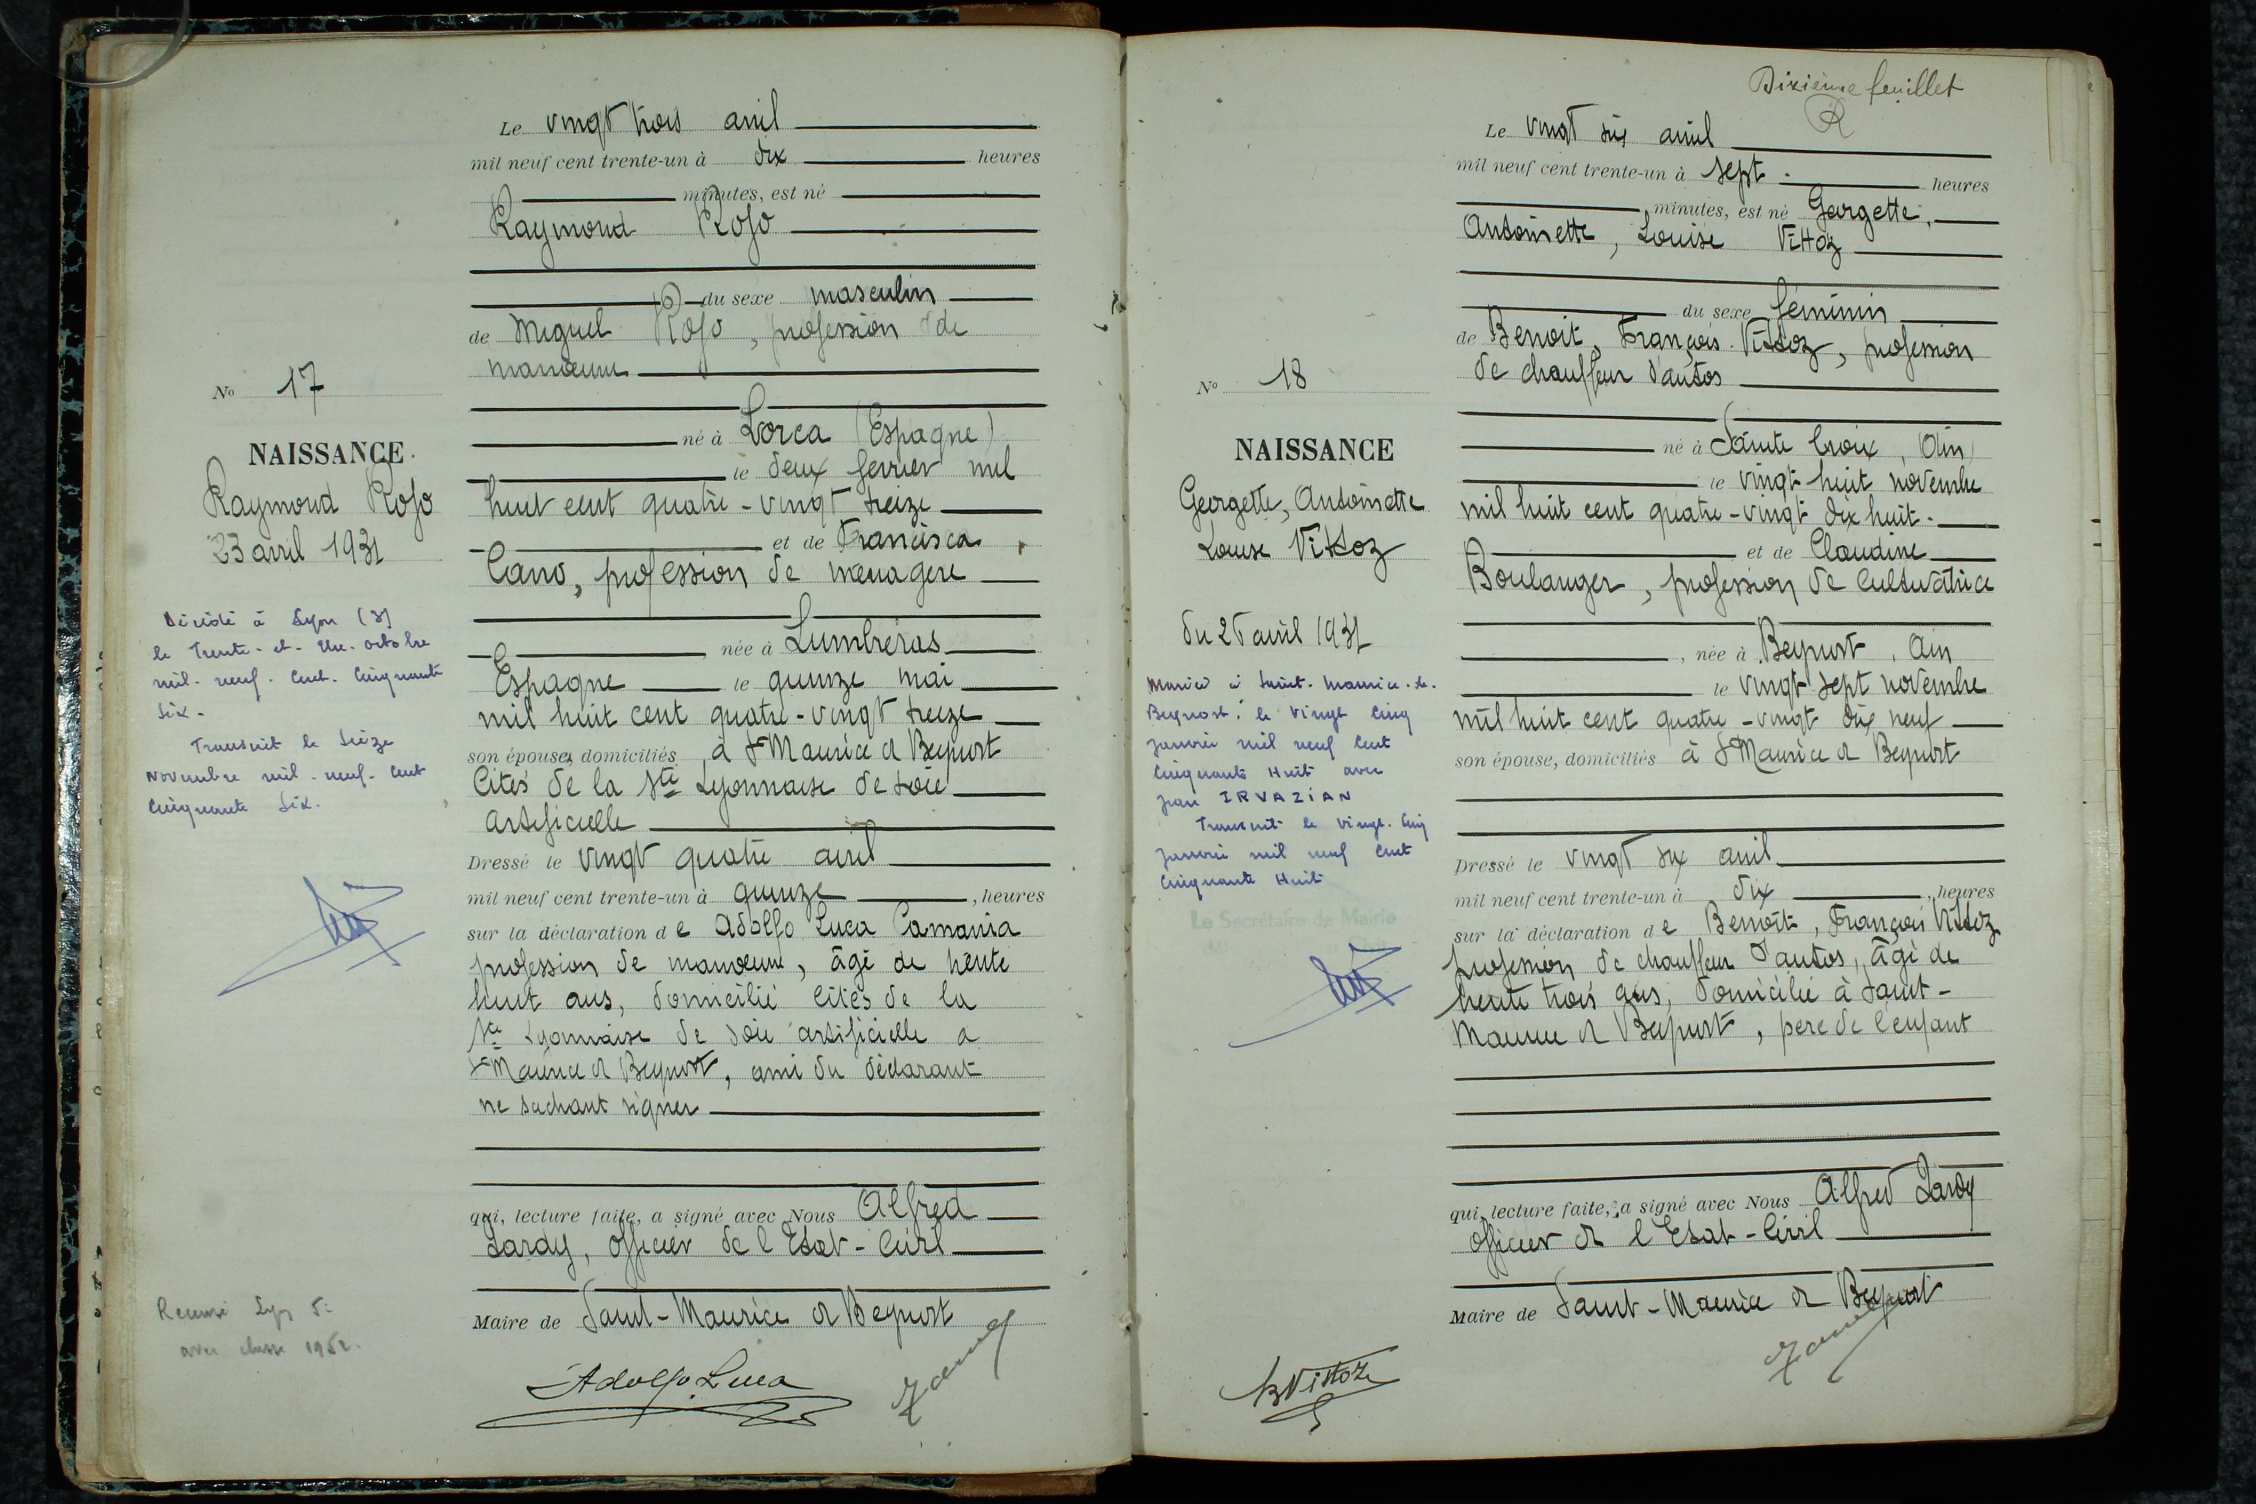 Le vingt trois avril
mil neuf cent trente-un à dix heures
minutes, est né
Raymond Rojo
du sexe masculin
de Miguel Rojo, profession de
manoeuvre
né à Lorca (Espagne)
le deux fevrier mil
huit cent quatre-vingt treize
et de Francisca
Cano, profession de menagere
née à Lumbreras
Espagne le quinze mai
mil huit cent quatre-vingt treize
son épouse, domiciliés à St Maurice de Beynost
Cités de la Sté Lyonnaise de soie
artificielle
Dressé le vingt quatre avril
mil neuf cent trente-un à quinze, heures
sur la déclaration de Adolfo Luca Camania
profession de manoeuvre, âgé de trente
huit ans, domicilié cités de la
Sté Lyonnaise de soie artificielle a
St Maurice de Beynost, ami du déclarant
ne sachant signer
qui, lecture faite, a signé avec Nous Alfred
Jardy, officier de l'Etat-Civil
Maire de Saint-Maurice de Beynost
Adolfo Luca
No 17
NAISSANCE
Raymond Rojo
23 avril 1931
Décédé à Lyon (3)
le Trente-et-Un-octobre
mil-neuf-Cent-Cinquante
Six-
Transcrit le Seize
Novembre mil-neuf-Cent
Cinquante Six.
Recensé Lyon
avec classe 1952.
Dixième feuillet
Le vingt six avril
mil neuf cent trente-un à sept heures
minutes, est né Georgette,
Antoinette, Louise Vittoz
du sexe féminin
de Benoit, François Vittoz, profession
de chauffeur d'autos
né à Sainte Croix, Ain,
le vingt-huit novembre
mil huit cent quatre-vingt dix huit.
et de Claudine
Boulanger, profession de cultivatrice
, née à Beynost, Ain
le vingt sept novembre
mil huit cent quatre-vingt dix neuf
son épouse, domiciliés à St Maurice de Beynost
Dressé le vingt six avril
mil neuf cent trente-un à dix, heures
sur la déclaration de Benoît, François Vittoz
profession de chauffeur d'autos, âgé de
trente trois ans, domicilié à Saint-
Maurice de Beynost, père de l'enfant
qui, lecture faite, a signé avec Nous Alfred Jardy
officier de l'Etat-Civil
Maire de Saint-Maurice de Beynost
B Vittoz
No 18
NAISSANCE
Georgette, Antoinette
Louise Vittoz
du 26 avril 1931
Mariée à Saint-Maurice-de-
Beynost. le Vingt Cinq
Janvier mil neuf Cent
Cinquante Huit avec
Jean IRVAZIAN
Transcrit le Vingt-Cinq
Janvier mil neuf Cent
Cinquante Huit
Le Secrétaire de Mairie